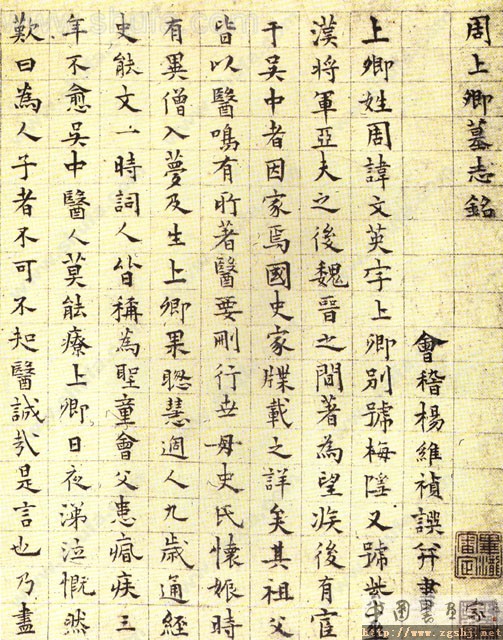 周上卿墓志銘
會稽楊維禎譔并書
上卿姓周諱文英字上卿別號梅隱又號紫華
漢將軍亞夫之後魏晉之間著為望族後有宦
于吳中者因家焉國史家牒載之詳矣其祖父
皆以醫鳴有所著醫要刪行世母史氏懷娠時
有異僧入夢及生上卿果聰慧過人九歲通經
史能文一時詞人皆稱為聖童會父患瘕疾三
年不愈吳中醫人莫能療上卿日夜涕泣慨然
歎曰為人子者不可不知醫誠哉是言也乃盡
http://www.zgshj.net